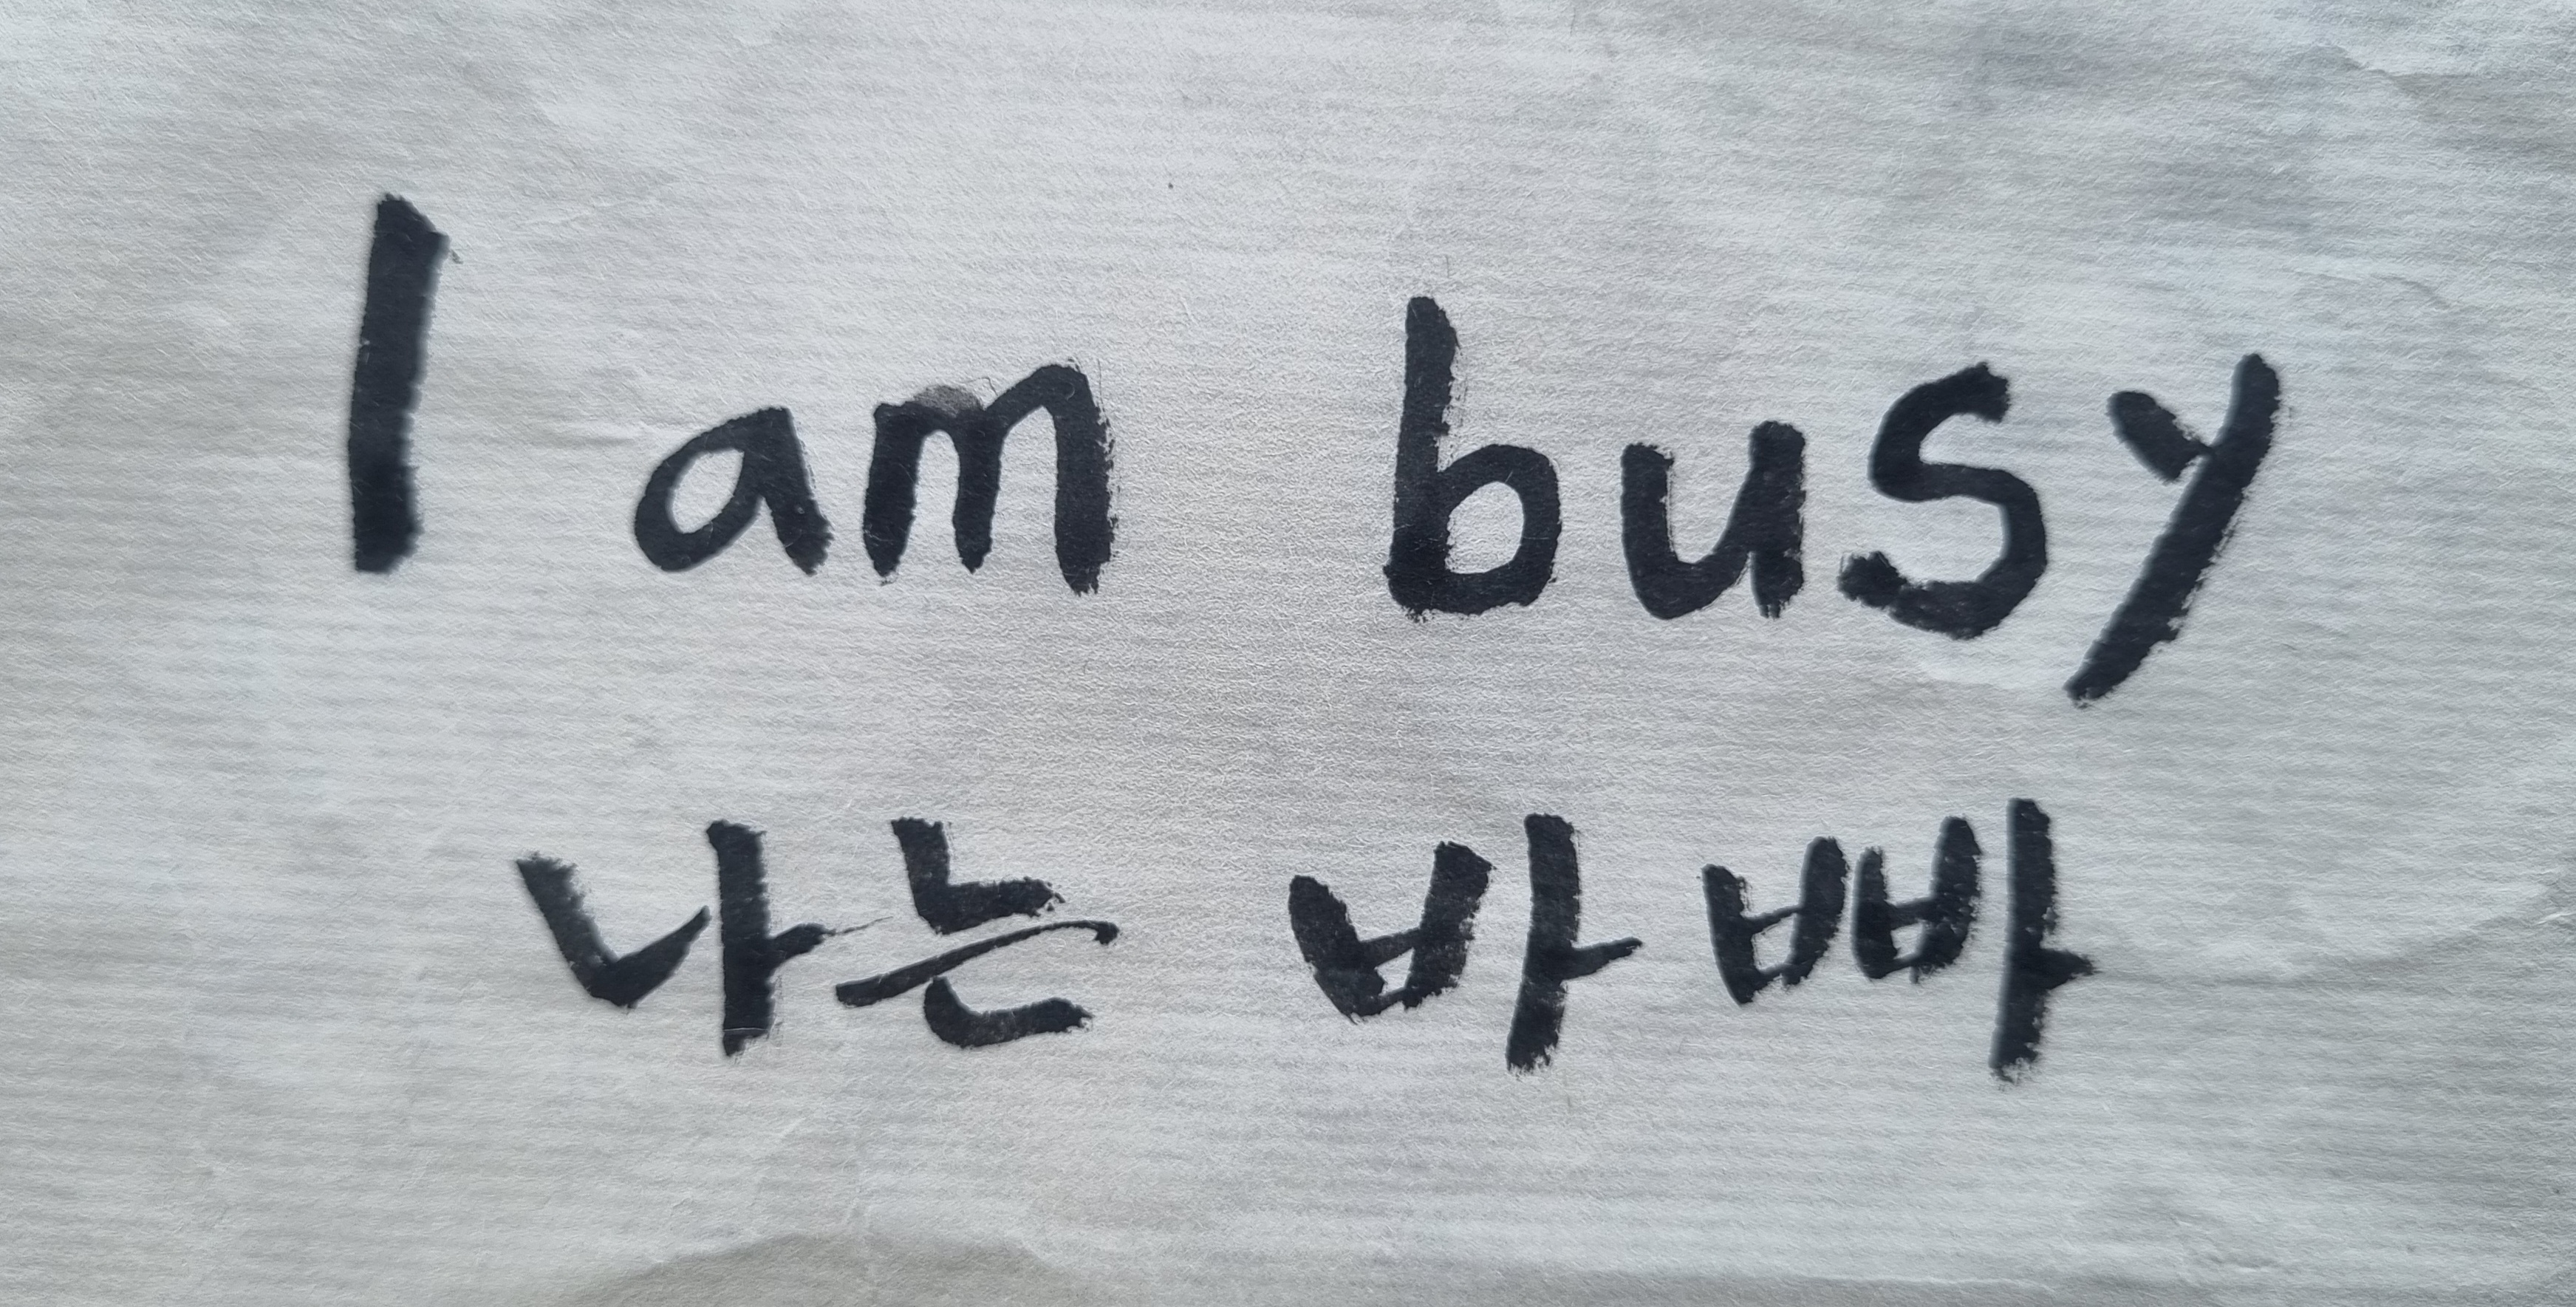 I am busy
나는 바빠